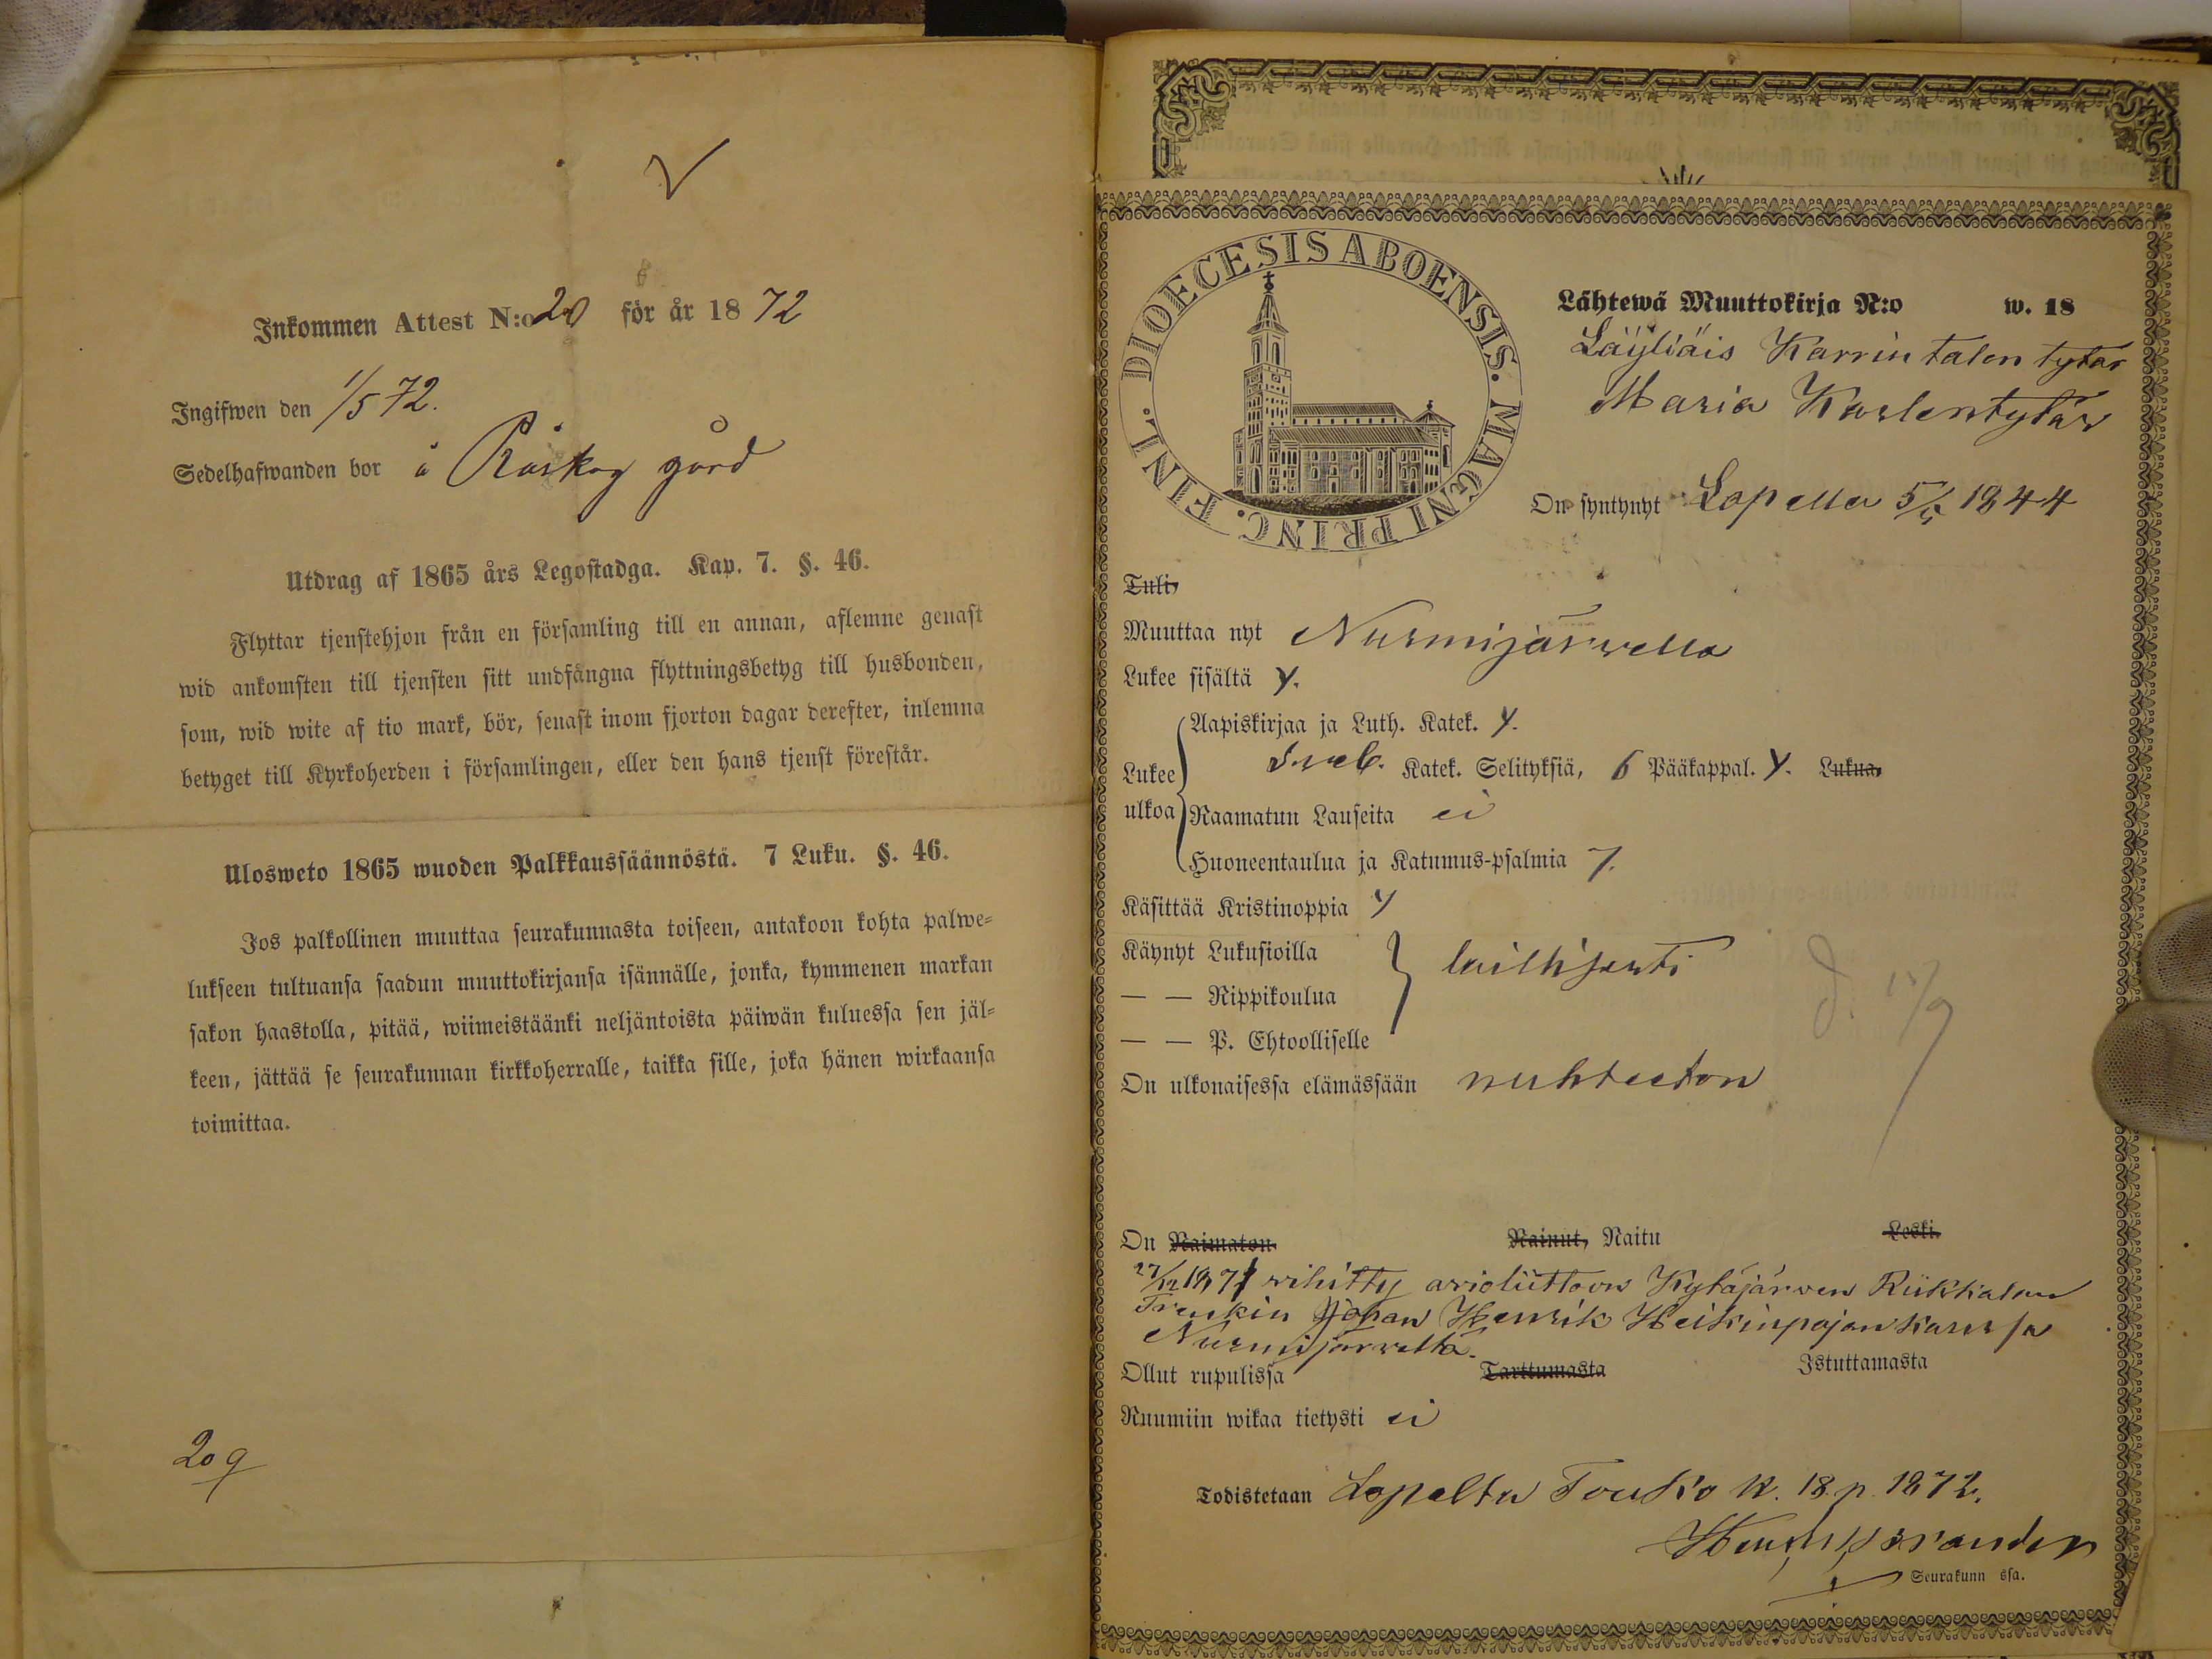 Inkommen Attest N:o 20 för år 1872
Ingifwen den 1/5 72.
Sedelhafwanden bor å Råskog gård
Utdrag af 1865 års Legostadga. Kap. 7. §. 46.
Flyttar tjenstehjon från en församling till en annan, aflemne genast
wid ankomsten till tjensten sitt undfångna flyttningsbetyg till husbonden,
som, wid wite af tio mark, bör, senast inom fjorton dagar derefter, inlemna
betyget till Kyrkoherden i församlingen, eller den hans tjenst förestår.
Ulosweto 1865 wuoden Palkkaussäännöstä. 7 Luku. §. 46.
Jos palkollinen muuttaa seurakunnasta toiseen, antakoon kohta palwe-
lukseen tultuansa saadun muuttokirjansa isännälle, jonka, kymmenen markan
sakon haastolla, pitää, wiimeistäänki neljäntoista päiwän kuluessa sen jäl-
keen, jättää se seurakunnan kirkkoherralle, taikka sille, joka hänen wirkaansa
toimittaa.
209
DIOECESIS ABOENSIS. MAGNI PRINC. FINL.
Lähtewä Muuttokirja N:o w. 18
Läyliäis Karrin talon tytär
Maria Karlentytär
On syntynyt Lopella 5/5 1844
Tuli,
Muuttaa nyt Nurmijärwella
Lukee sisältä y.
Aapiskirjaa ja Luth. Katek. y.
Lukee Sveb. Katek. Selityksiä, 6 Pääkappal. y. Lukua,
ulkoa Raamatun Lauseita ei
Huoneentaulua ja Katumus-psalmia y.
Käsittää Kristinoppia y
Käynyt Lukusioilla
— — Rippikoulua laillisesti
— — P. Ehtoolliselle
On ulkonaisessa elämässään nuhteeton
On Naimaton. Nainut, Naitu Leski.
27/12 1871 wihitty awioliittoon Kytäjärwen Riikkalan
Trenkin Johan Henrik Heikinpojan kanssa
Nurmijärwelta.
Ollut rupulissa Tarttumasta Istuttamasta
Ruumiin wikaa tietysti ei
Todistetaan Lopelta Touko k. 18 p. 1872.
Seurakunn ssa.